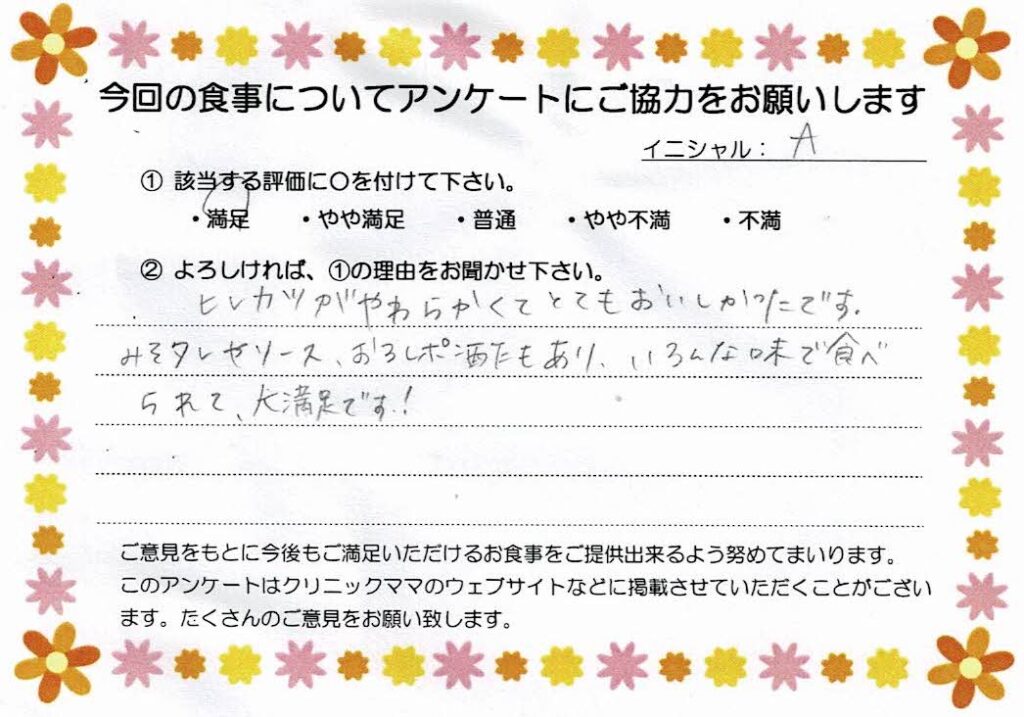 今回の食事についてアンケートにご協力をお願いします
イニシャル： A
① 該当する評価に〇を付けて下さい。
・満足 ・やや満足 ・普通 ・やや不満 ・不満
② よろしければ、①の理由をお聞かせ下さい。
ヒレカツがやわらかくてとてもおいしかったです。
みそタレやソース、おろしポン酢もあり、いろんな味で食べ
られて、大満足です!
ご意見をもとに今後もご満足いただけるお食事をご提供出来るよう努めてまいります。
このアンケートはクリニックママのウェブサイトなどに掲載させていただくことがござい
ます。たくさんのご意見をお願い致します。